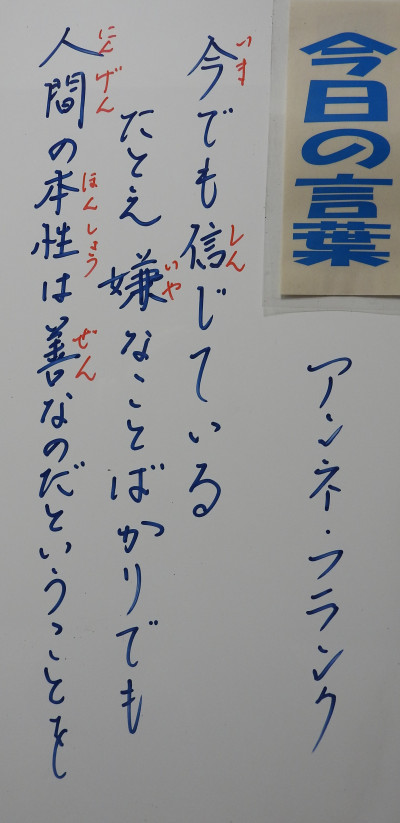 今日の言葉
アンネ・フランク
今でも信じている
いま しん
たとえ嫌なことばかりでも
いや
人間の本性は善なのだということを
にんげん ほんしょう ぜん